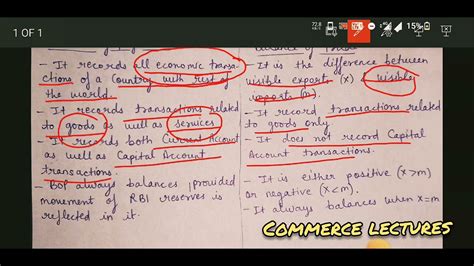 72.8
KB/s
75%
1 OF 1
- It records all economic transa-
ctions of a Country with rest of
the world.
- It records transactions related
to goods as well as services
- It records both Current Account
as well as Capital Account
transactions.
- BOP always balances, provided
movement of RBI reserves is
reflected in it.
- It is the difference between
visible export (x) visible
import (m).
- It record transactions related
to goods only
- It does not record Capital
Account transactions.
- It is either positive (x>m)
or negative (x<m).
- It always balances when x=m
COMMERCE LECTURES